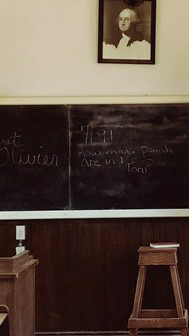 Olivier
7/91
How many pounds
are in 1
Ton?